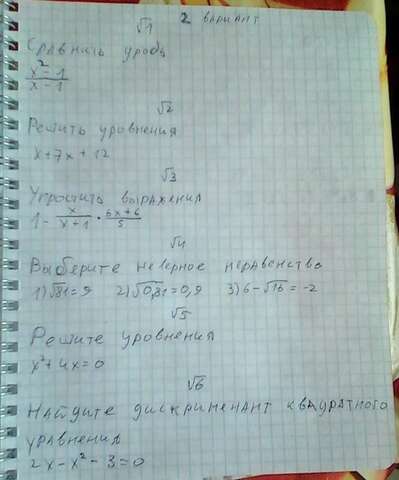 √1 2 вариант
Сравнить дробь
x² - 1 / x - 1
√2
Решить уровнения
x + 7x + 12
√3
Упростить выражения
1 - x / x + 1 · 6x + 6 / 5
√4
Выберите неверное неравенство
1) √81 = 9 2) √0,81 = 0,9 3) 6 - √16 = -2
√5
Решите уровнения
x² + 4x = 0
√6
Найдите дискременант квадратного
уравнения
2x - x² - 3 = 0